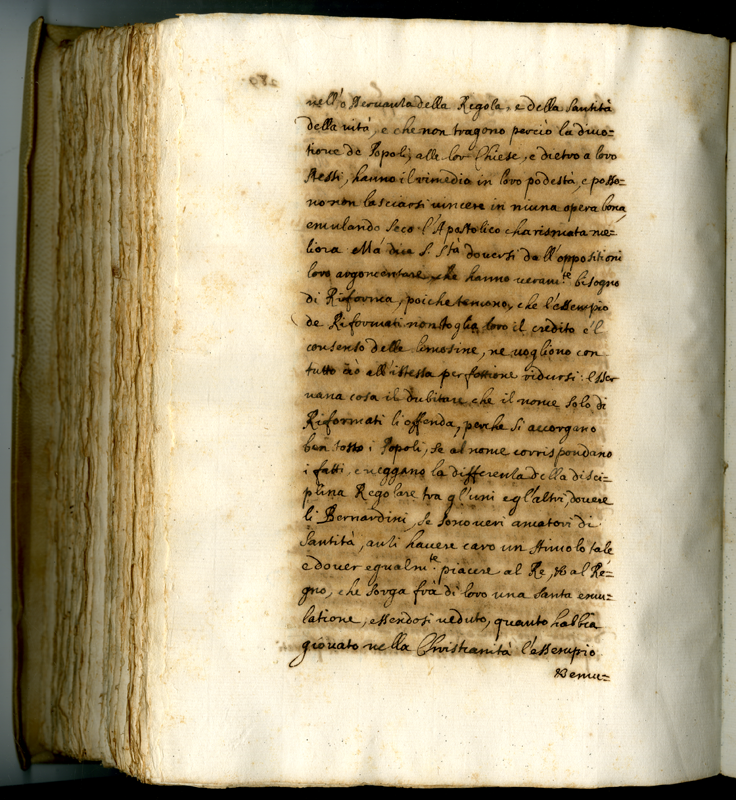 nell'osservanza della Regola, e della Santità
della vità, e che non tragono perciò la divo=
tione de Popoli, alle lor Chiese, e dietro a loro
stessi, hanno il rimedio in loro podestà, e posso=
no non lasciarsi vincere in niuna opera bona,
emulando Seco l'Apostolico charismata me=
liora. Mà dice S. Stà doversi dall'oppositioni
loro argomentare che hanno veram.te bisogno
di Riforma, poiche temono, che l'essempio
de Riformati non toglia loro il credito e'l
consenso delle limosine, ne vogliono con
tutto ciò all'istessa perfettione ridursi: Esser
vana cosa il dubitare che il nome solo di
Riformati li offenda, perche si accorgano
ben tosto i Popoli, se al nome corrispondano
i fatti, e veggano la differenza della disci=
plina Regolare tra gl'uni e gl'altri, dovere
li Bernardini, se sono veri amatori di
Santità, anzi havere caro un stimolo tale
e dover egualm.te piacere al Re, & al Re=
gno, che sorga frà di loro una santa emu=
latione, essendosi veduto, quanto habbia
giovato nella Christianità l'essempio
& emu=